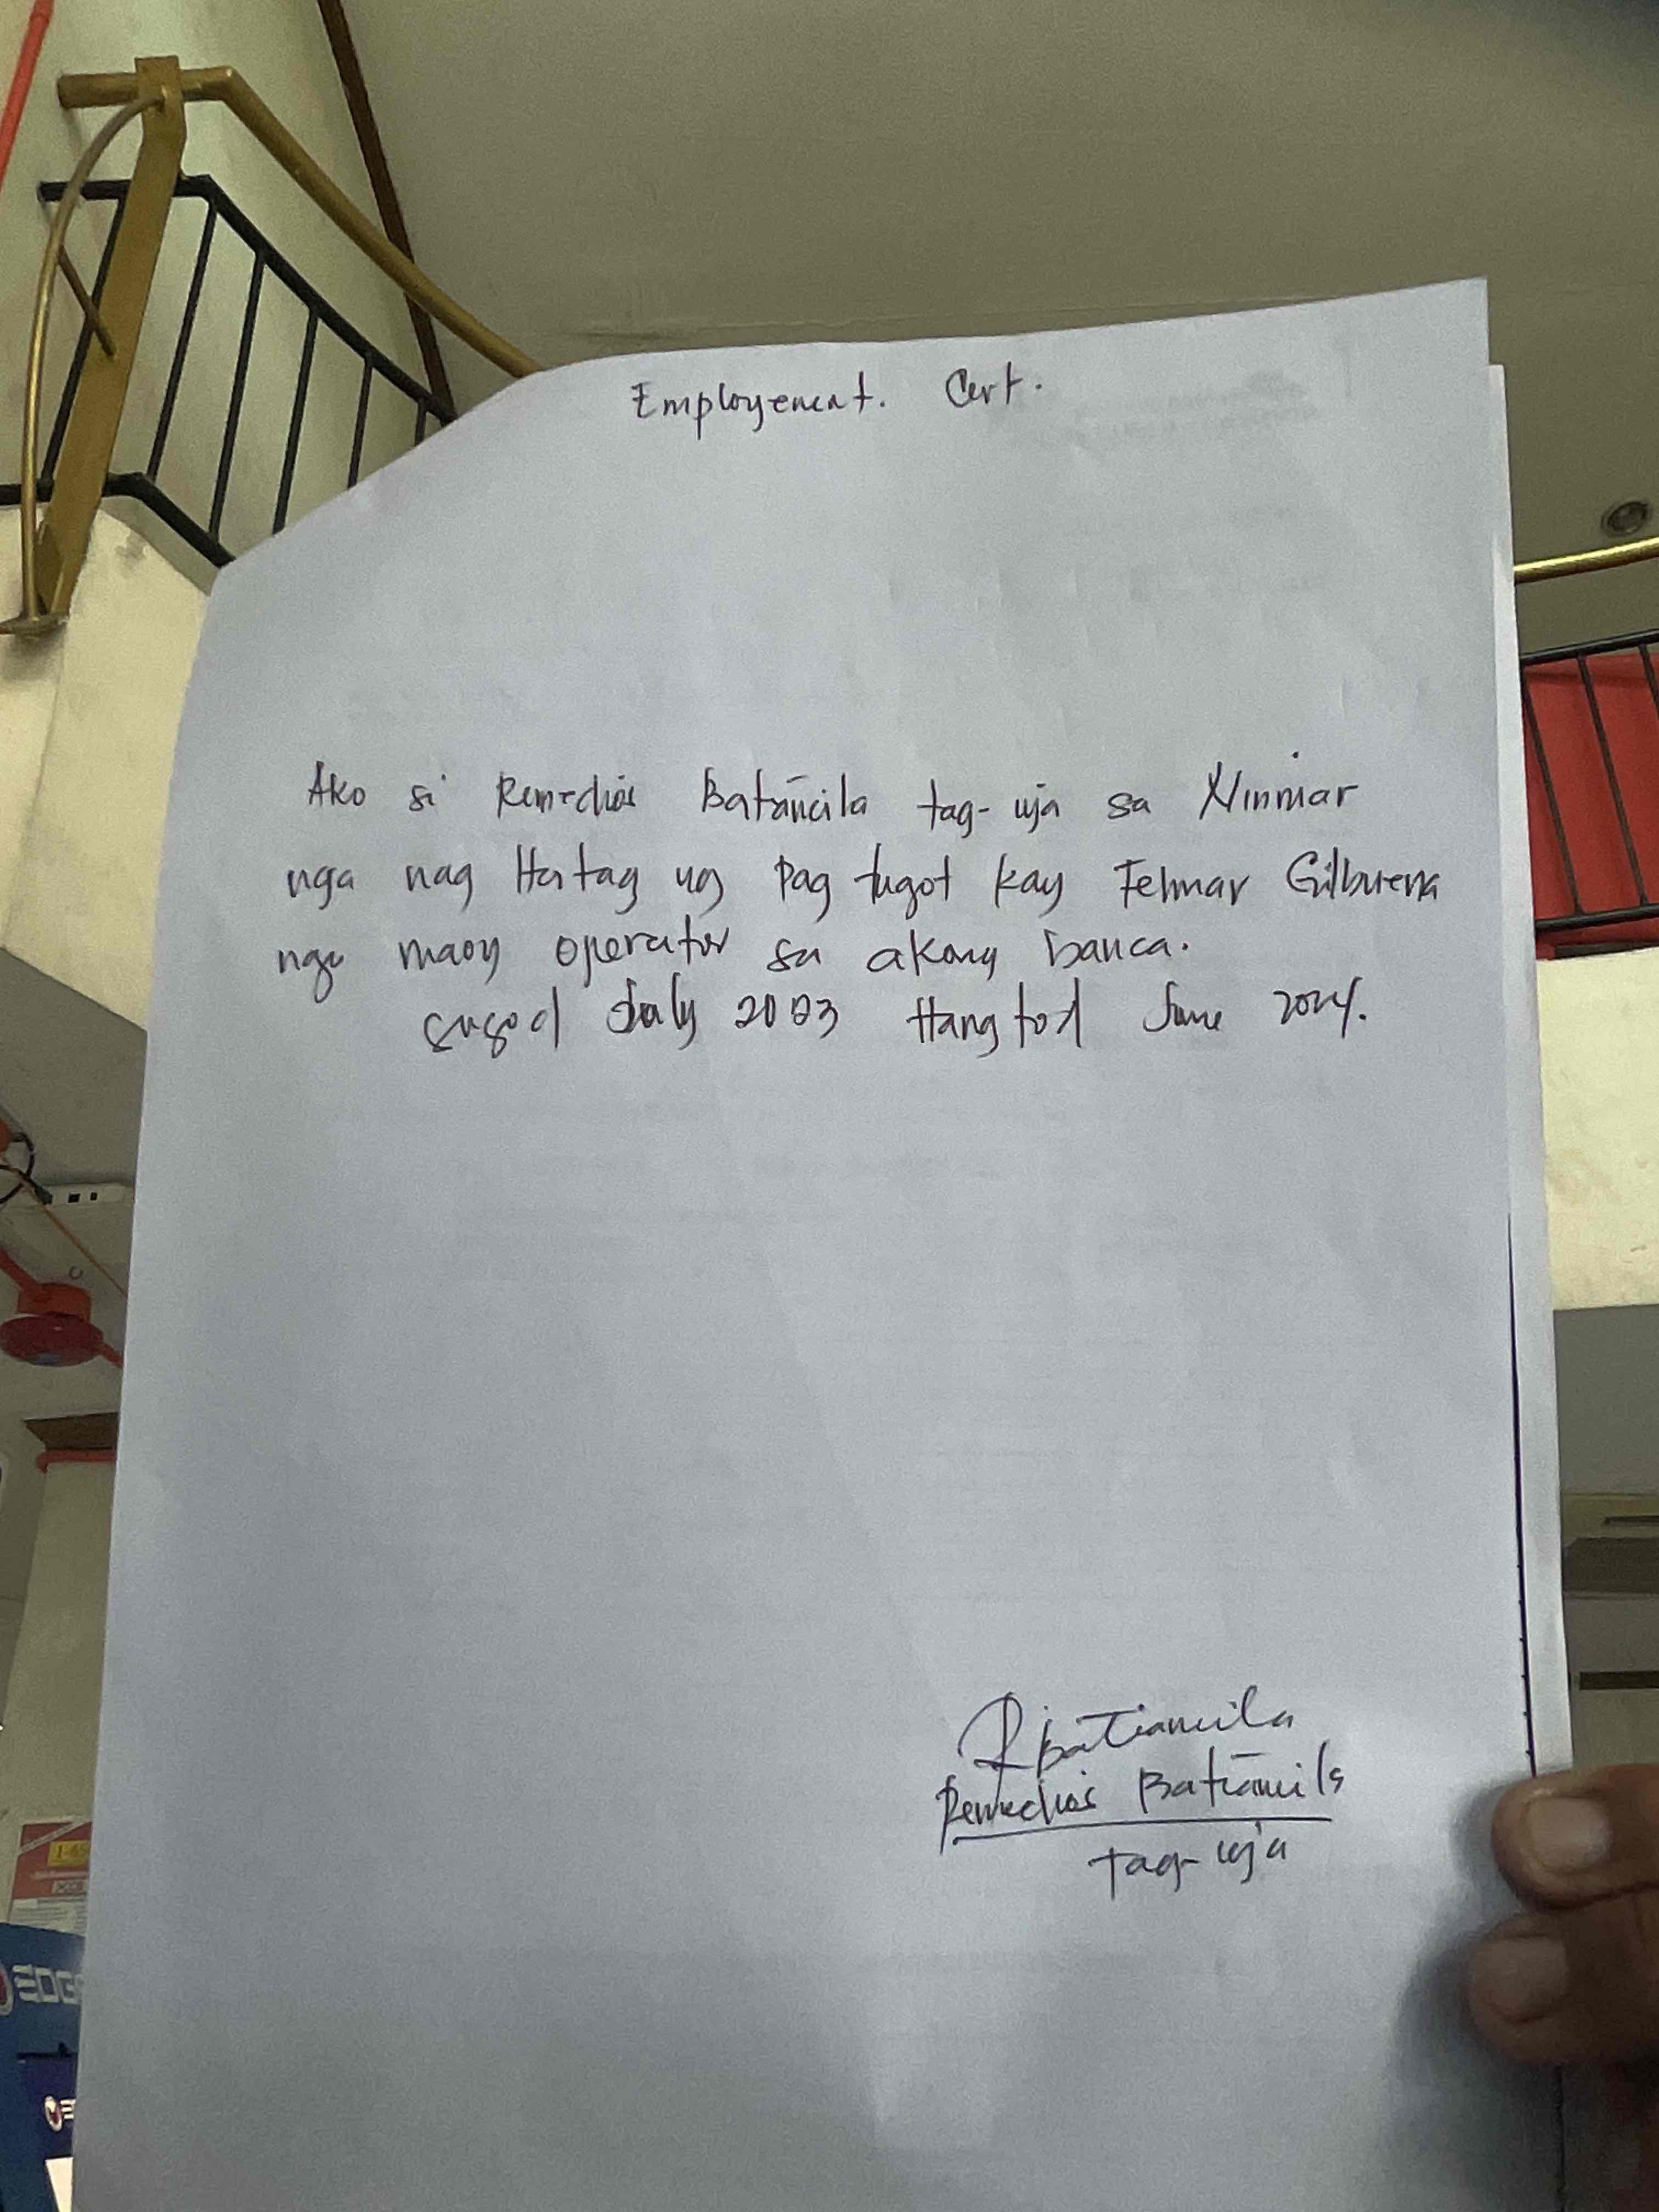 Employement. Cert.
Ako si Remedios Batiancila tag-uja sa Ninmar
nga nag Hatag ug Pag tugot kay Felmar Gilbuena
nga maoy operator sa akong banca.
sugod July 2003 Hangtod June 2024.
RBatiancila
Remedios Batiancila
tag-uja
EDG